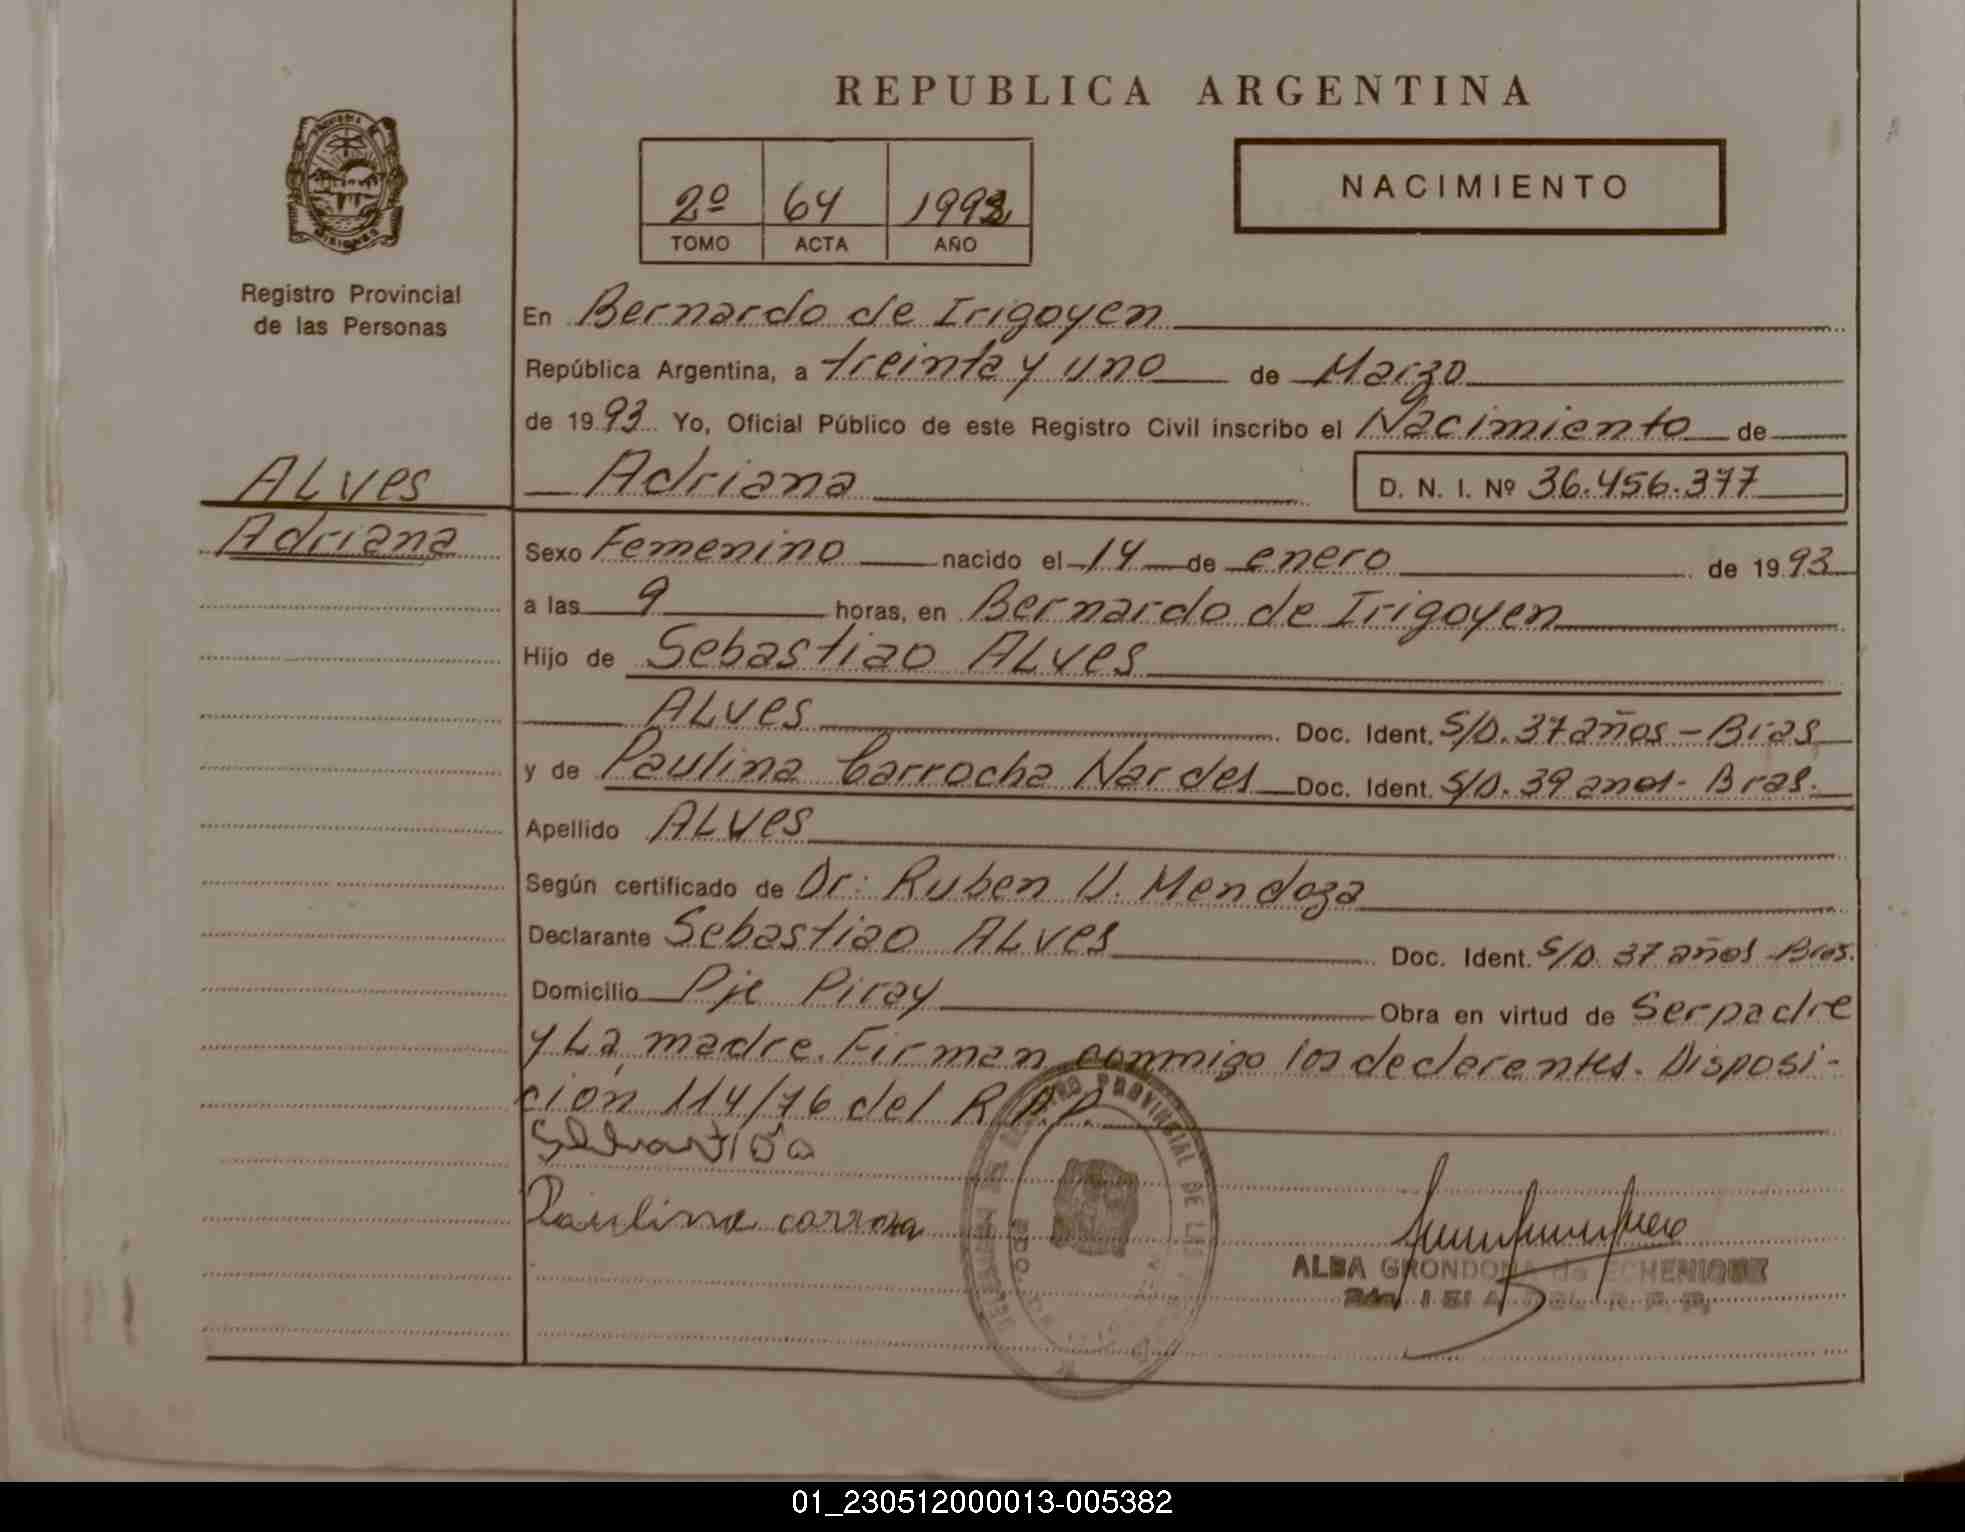 REPUBLICA ARGENTINA
2º 64 1993
TOMO ACTA AÑO
NACIMIENTO
MISIONES
Registro Provincial
de las Personas
En Bernardo de Irigoyen
República Argentina, a treinta y uno de Marzo
de 1993 Yo, Oficial Público de este Registro Civil inscribo el Nacimiento de
ALVES
Adriana
Adriana D. N. I. Nº 36.456.377
Sexo Femenino nacido el 14 de enero de 1993
a las 9 horas, en Bernardo de Irigoyen
Hijo de Sebastiao ALVES
ALVES Doc. Ident. S/D. 37 años - Bras
y de Paulina Carrocha Nardes Doc. Ident. S/D. 39 anos - Bras.
Apellido ALVES
Según certificado de Dr: Ruben U. Mendoza
Declarante Sebastiao ALVES Doc. Ident. S/D. 37 años - Bras.
Domicilio Pje Piray Obra en virtud de Ser padre
y La madre. Firman conmigo los declarentes. Disposi-
ción 114/76 del R.P.P.
Paulina
REGISTRO PROVINCIAL DE LAS
ALBA GRONDONA de ECHENIQUE
DEL R. P. P.
01_230512000013-005382